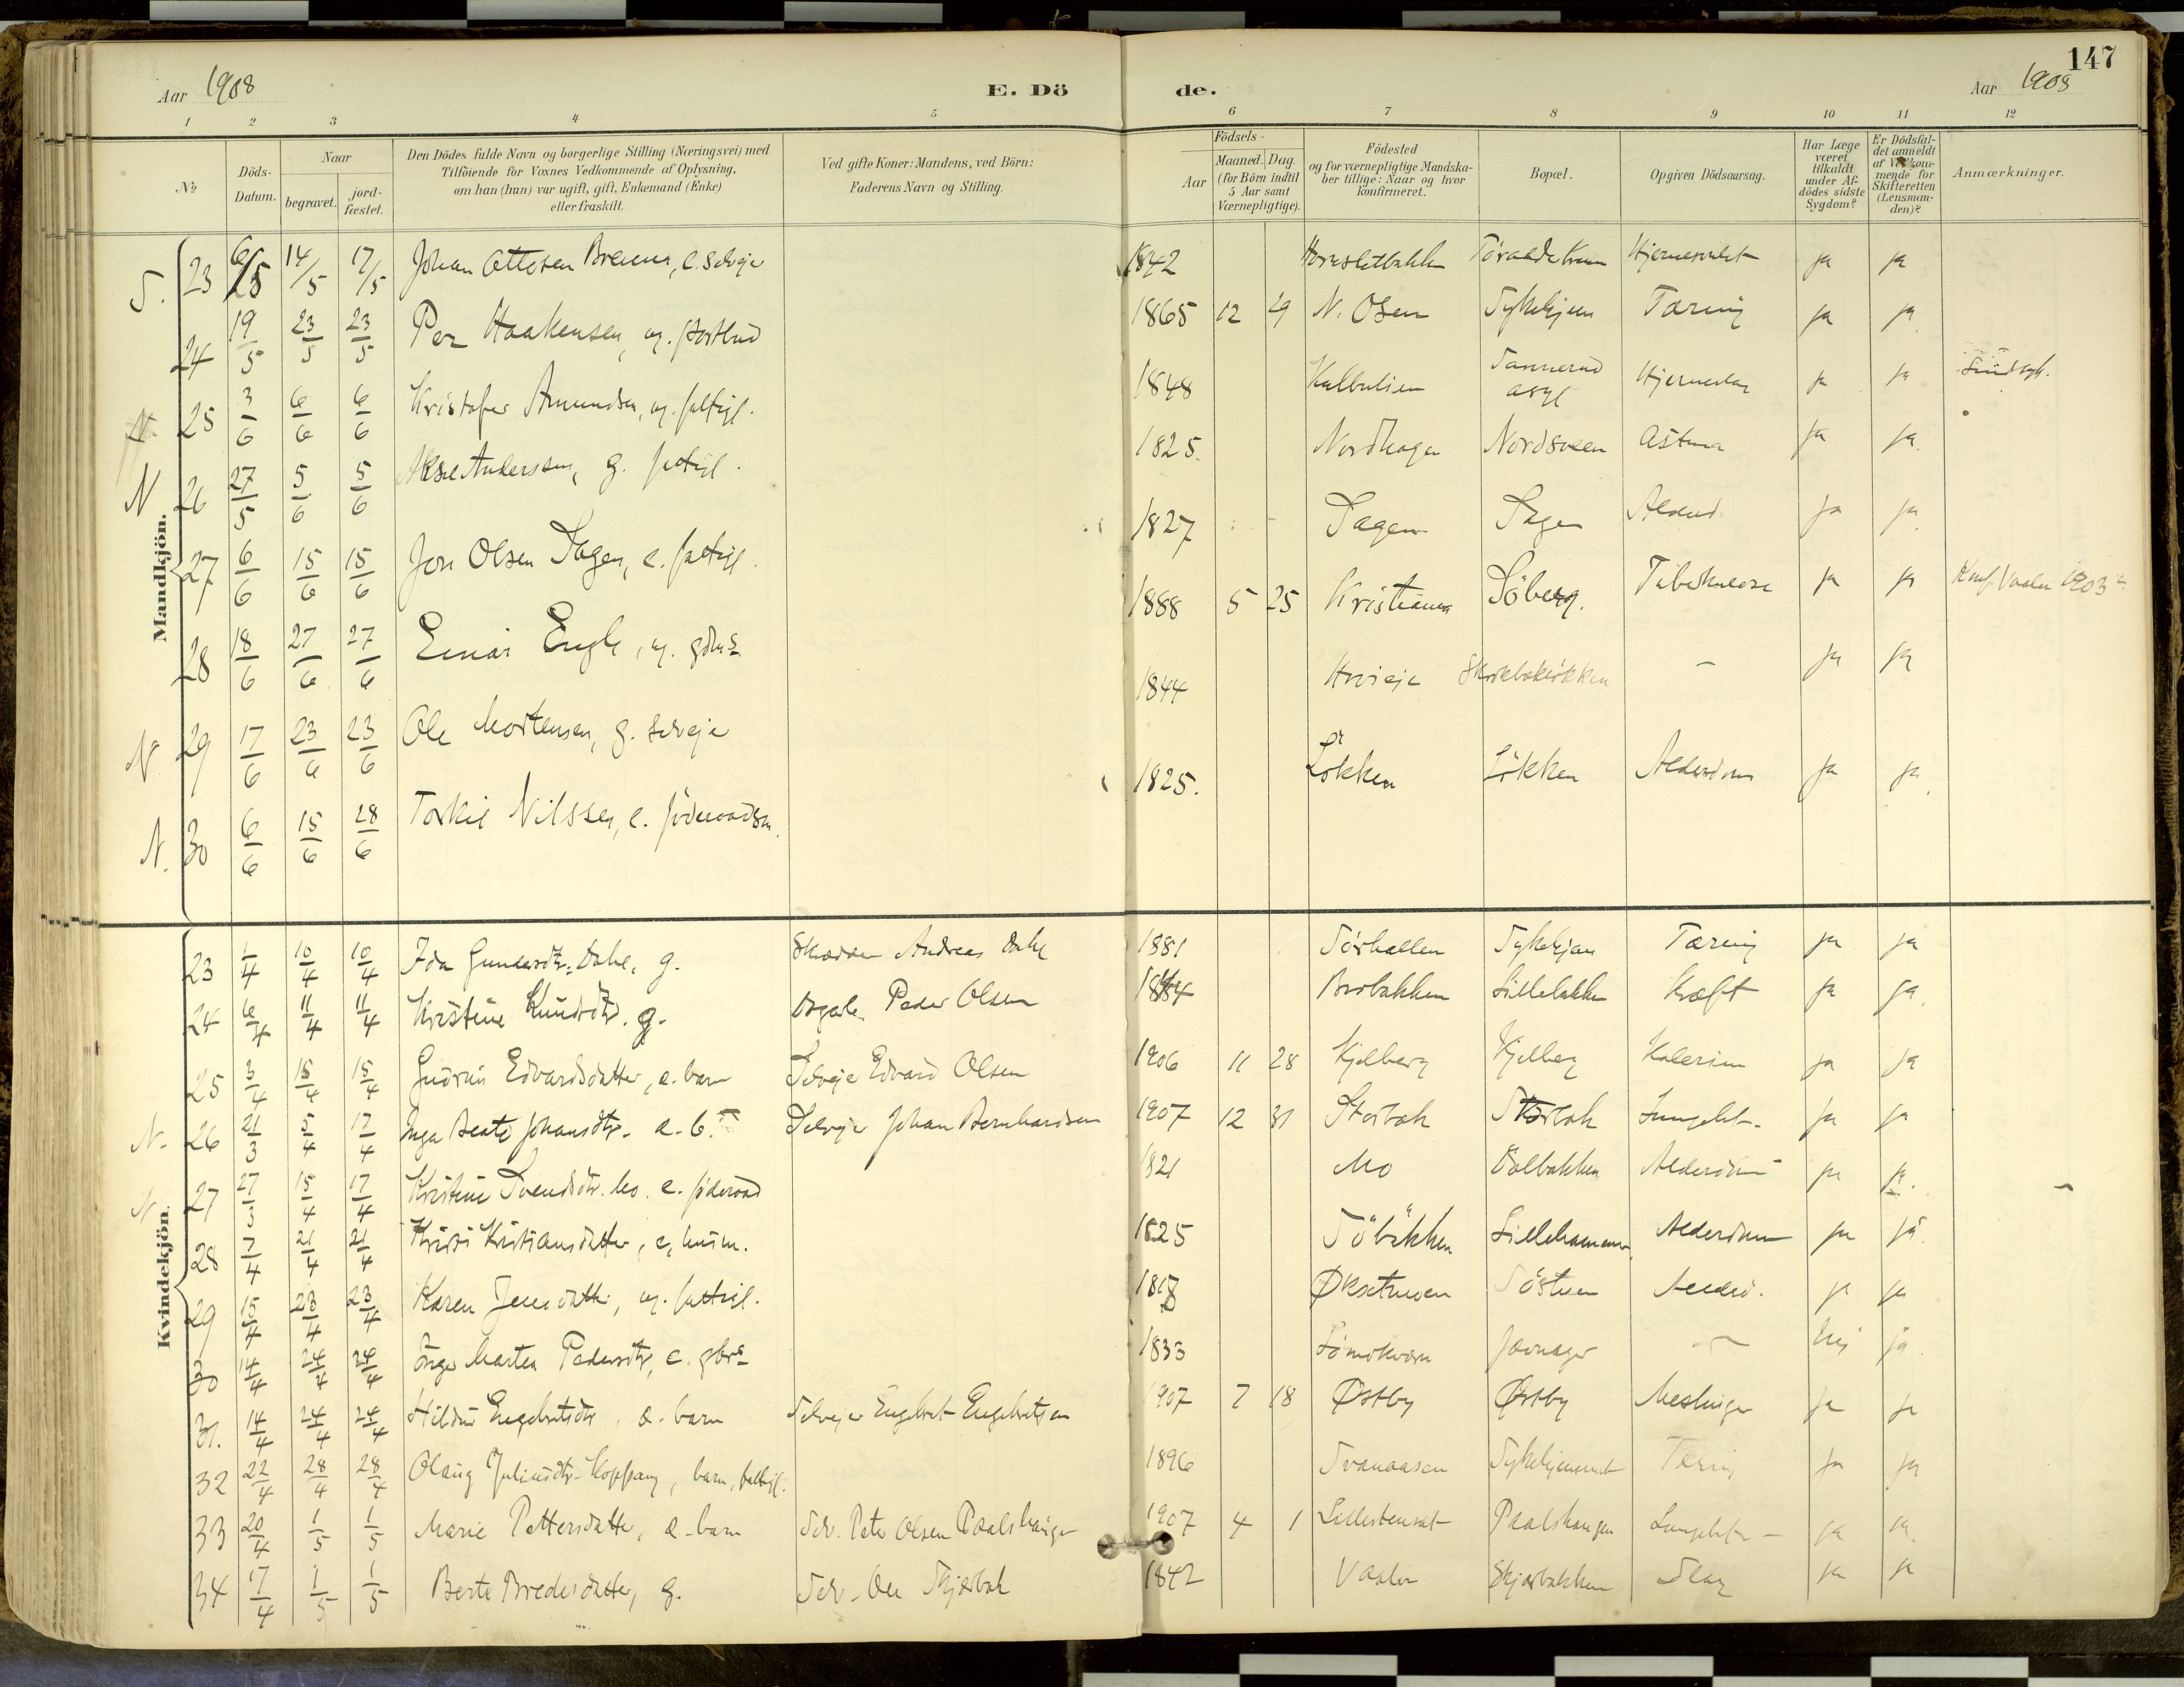 147
Aar 1908 E. Dö de. Aar 1908
1 2 3 4 5 6 7 8 9 10 11 12
№
Döds-Datum.
Naar begravet. jord-fæstet.
Den Dödes fulde Navn og borgerlige Stilling (Næringsvei) med
Tilföiende for Voxnes Vedkommende af Oplysning,
om han (hun) var ugift, gift, Enkemand (Enke)
eller fraskilt.
Ved gifte Koner: Mandens, ved Börn:
Faderens Navn og Stilling.
Födsels-
Aar Maaned. Dag.
(for Börn indtil
5 Aar samt
Værnepligtige).
Födested
og for værnepligtige Mandska-
ber tillige: Naar og hvor
konfirmeret.
Bopæl.
Opgiven Dödsaarsag.
Har Læge
været
tilkaldt
under Af-
dödes sidste
Sygdom?
Er Dödsfal-
det anmeldt
af Vedkom-
mende for
Skifteretten
(Lensman-
den)?
Anmærkninger.
Mandkjön.
S. 23 6/5 14/5 17/5 Johan Ottosen e. selveje 1842 ja ja
24 19/5 23/5 23/5 Per Haakensen, ug. postbud 1865 12 29 N. Olsen Sykehjem Tæring ja ja
25 3/6 6/6 6/6 Kristofer Amundsen, ug. fattigl. 1848 Sannerud asyl ja ja Sindsyk.
N 26 27/5 5/6 5/6 Anderssen, g. fattigl. 1825 Nordhagen Nordsveen Astma ja ja
27 6/6 15/6 15/6 Jon Olsen Sagen, e. fattigl. 1827 Sagen Sagen Alderd. ja ja
28 18/6 27/6 27/6 Einar Engh, ug. 1888 5 25 Kristiania Söberg. Tuberkulose ja ja Konf. Vaaler 1903
N 29 17/6 23/6 23/6 Ole Mortensen, g. selveje 1844 – ja ja
N. 30 6/6 15/6 28/6 Torkil Nilssen, e. föderaadsm. 1825. Løkken Løkken Alderdom ja ja
Kvindekjön.
23 1/4 10/4 10/4 Ida Gundersdtr. Dahl, g. Andreas Dahl 1881 Sörhallen Sykehjem Tæring ja ja
24 6/4 11/4 11/4 Kristine Knudsdtr. g. Peder Olsen Brobakken Lillebakken Kræft ja ja
25 3/4 15/4 15/4 Gudrun Edvardsdatter, e. barn Selveje Edvard Olsen 1906 11 28 Kjelberg Kjelberg Kolerine ja ja
N. 26 21/3 5/4 17/4 Inga Beate Johansdtr. e. b. Selveje Johan Bernhardsen 1907 12 31 Storbæk Storbæk Lungebet. ja ja
N 27 27/3 15/4 17/4 Kristine Svendsdtr. Mo. e. föderaad 1821 Mo Alderdom ja ja.
28 7/4 21/4 21/4 Kristi Kristiansdatter, e, husm. 1825 Söbakken Lillehammer Alderdom ja ja
29 15/4 23/4 23/4 Karen Jensdatter, ug. fattigl. Alderd. ja ja
30 14/4 24/4 24/4 Inger Marten Pedersdtr, e. 1833 – Nej ja
31. 14/4 24/4 24/4 Hildur Engebretsdtr. e. barn Selvejer Engebret Engebretsen 1907 7 18 Østby Østby Meslinger ja ja
32 22/4 28/4 28/4 Olaug Juliusdtr. Koppang, barn, fattigl. 1896 Svanaasen Sykehjemmet Tæring ja ja
33 20/4 1/5 1/5 Marie Pettersdatter, e. barn Selv. Peter Olsen Paalshaugen 1907 4 1 Paalshaugen Lungebet. ja ja
34 17/4 1/5 1/5 Berte Bredesdatter, g. Selv. Ole Skjærbæk 1842 Vaaler Skjærbækken Slag ja ja